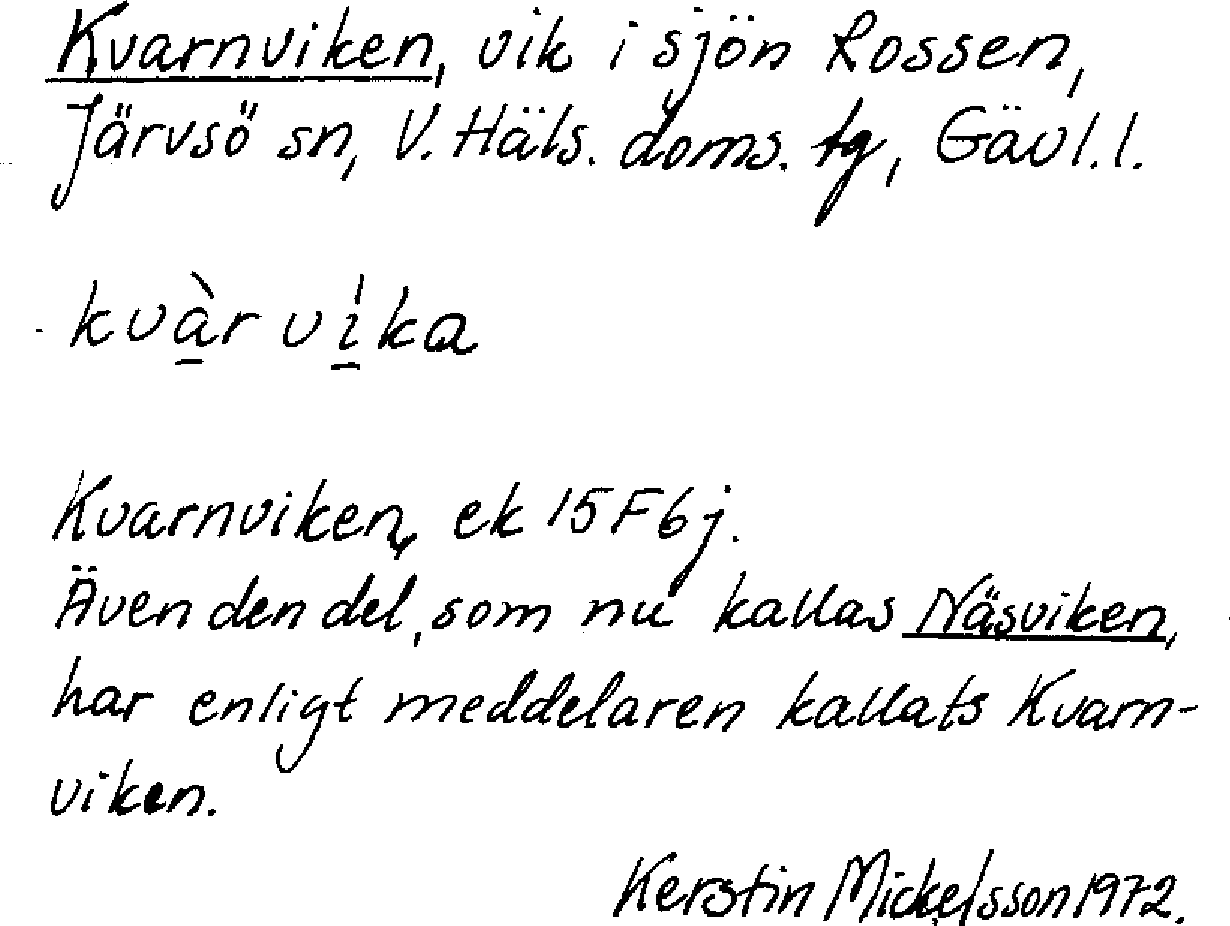 Kvarnviken, vik i sjön Lossen,
Järvsö sn, V. Häls. doms. tg, Gävl. l.
kvà̱r ví̱ka
Kvarnviken, ek 15F6j.
Även den del, som nu kallas Näsviken,
har enligt meddelaren kallats Kvarn-
viken.
Kerstin Mickelsson 1972.